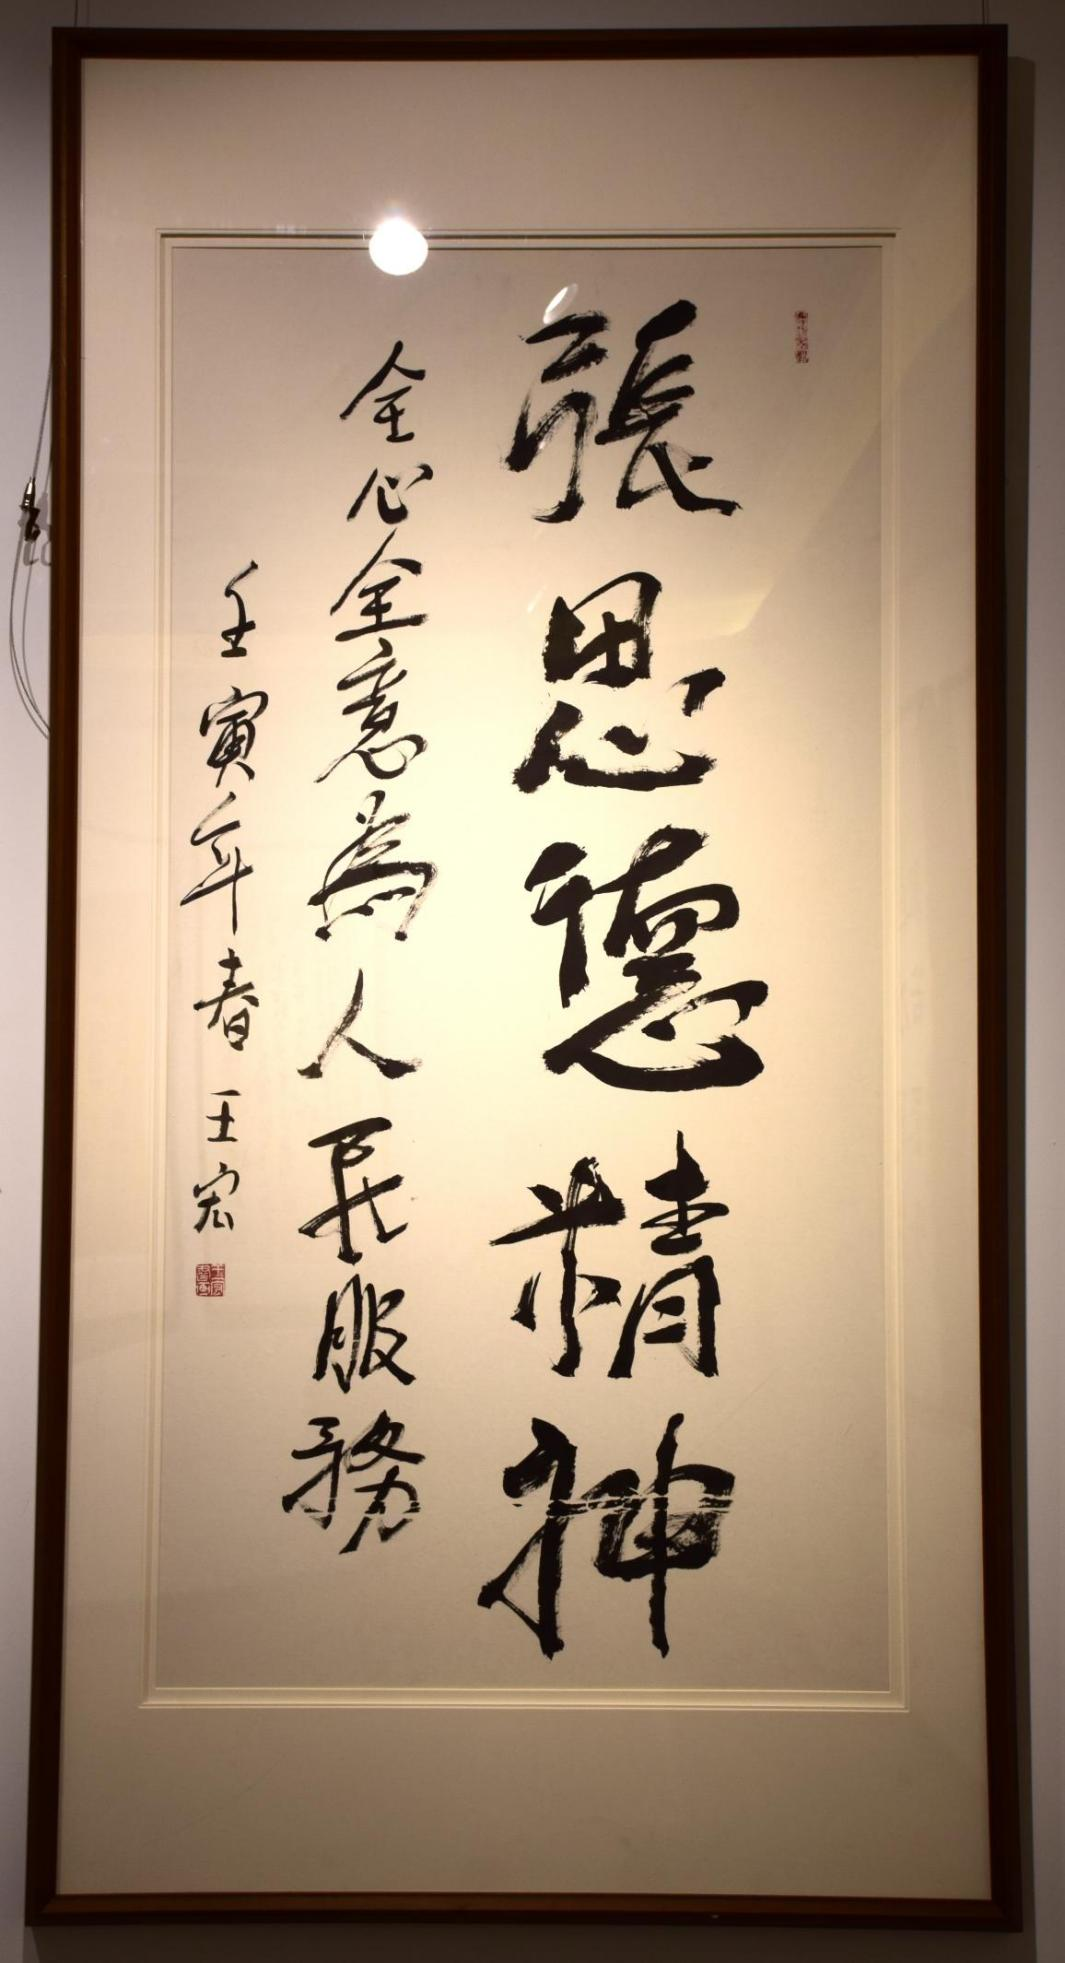 張思德精神
全心全意為人民服務
壬寅年春 王宏